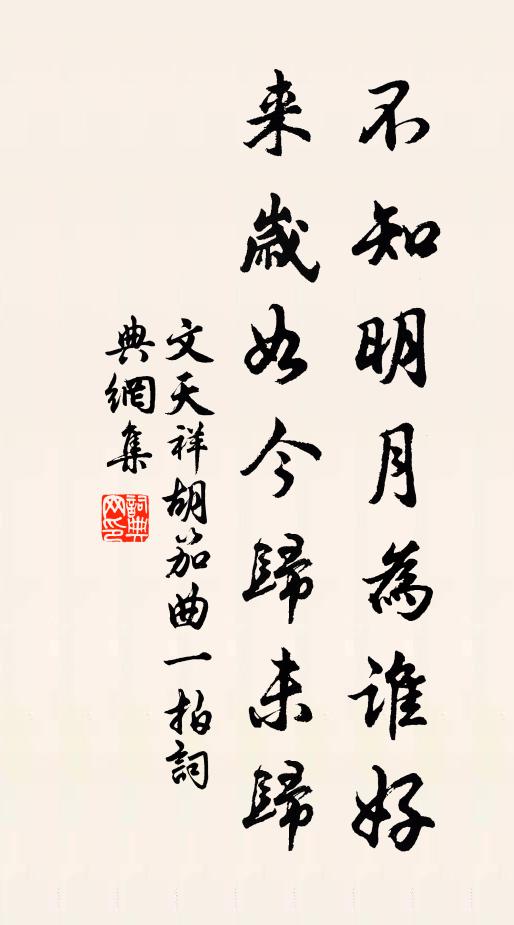 不知明月為谁好
来歲如今歸未歸
文天祥胡笳曲一拍詞
典網集
詞典網印